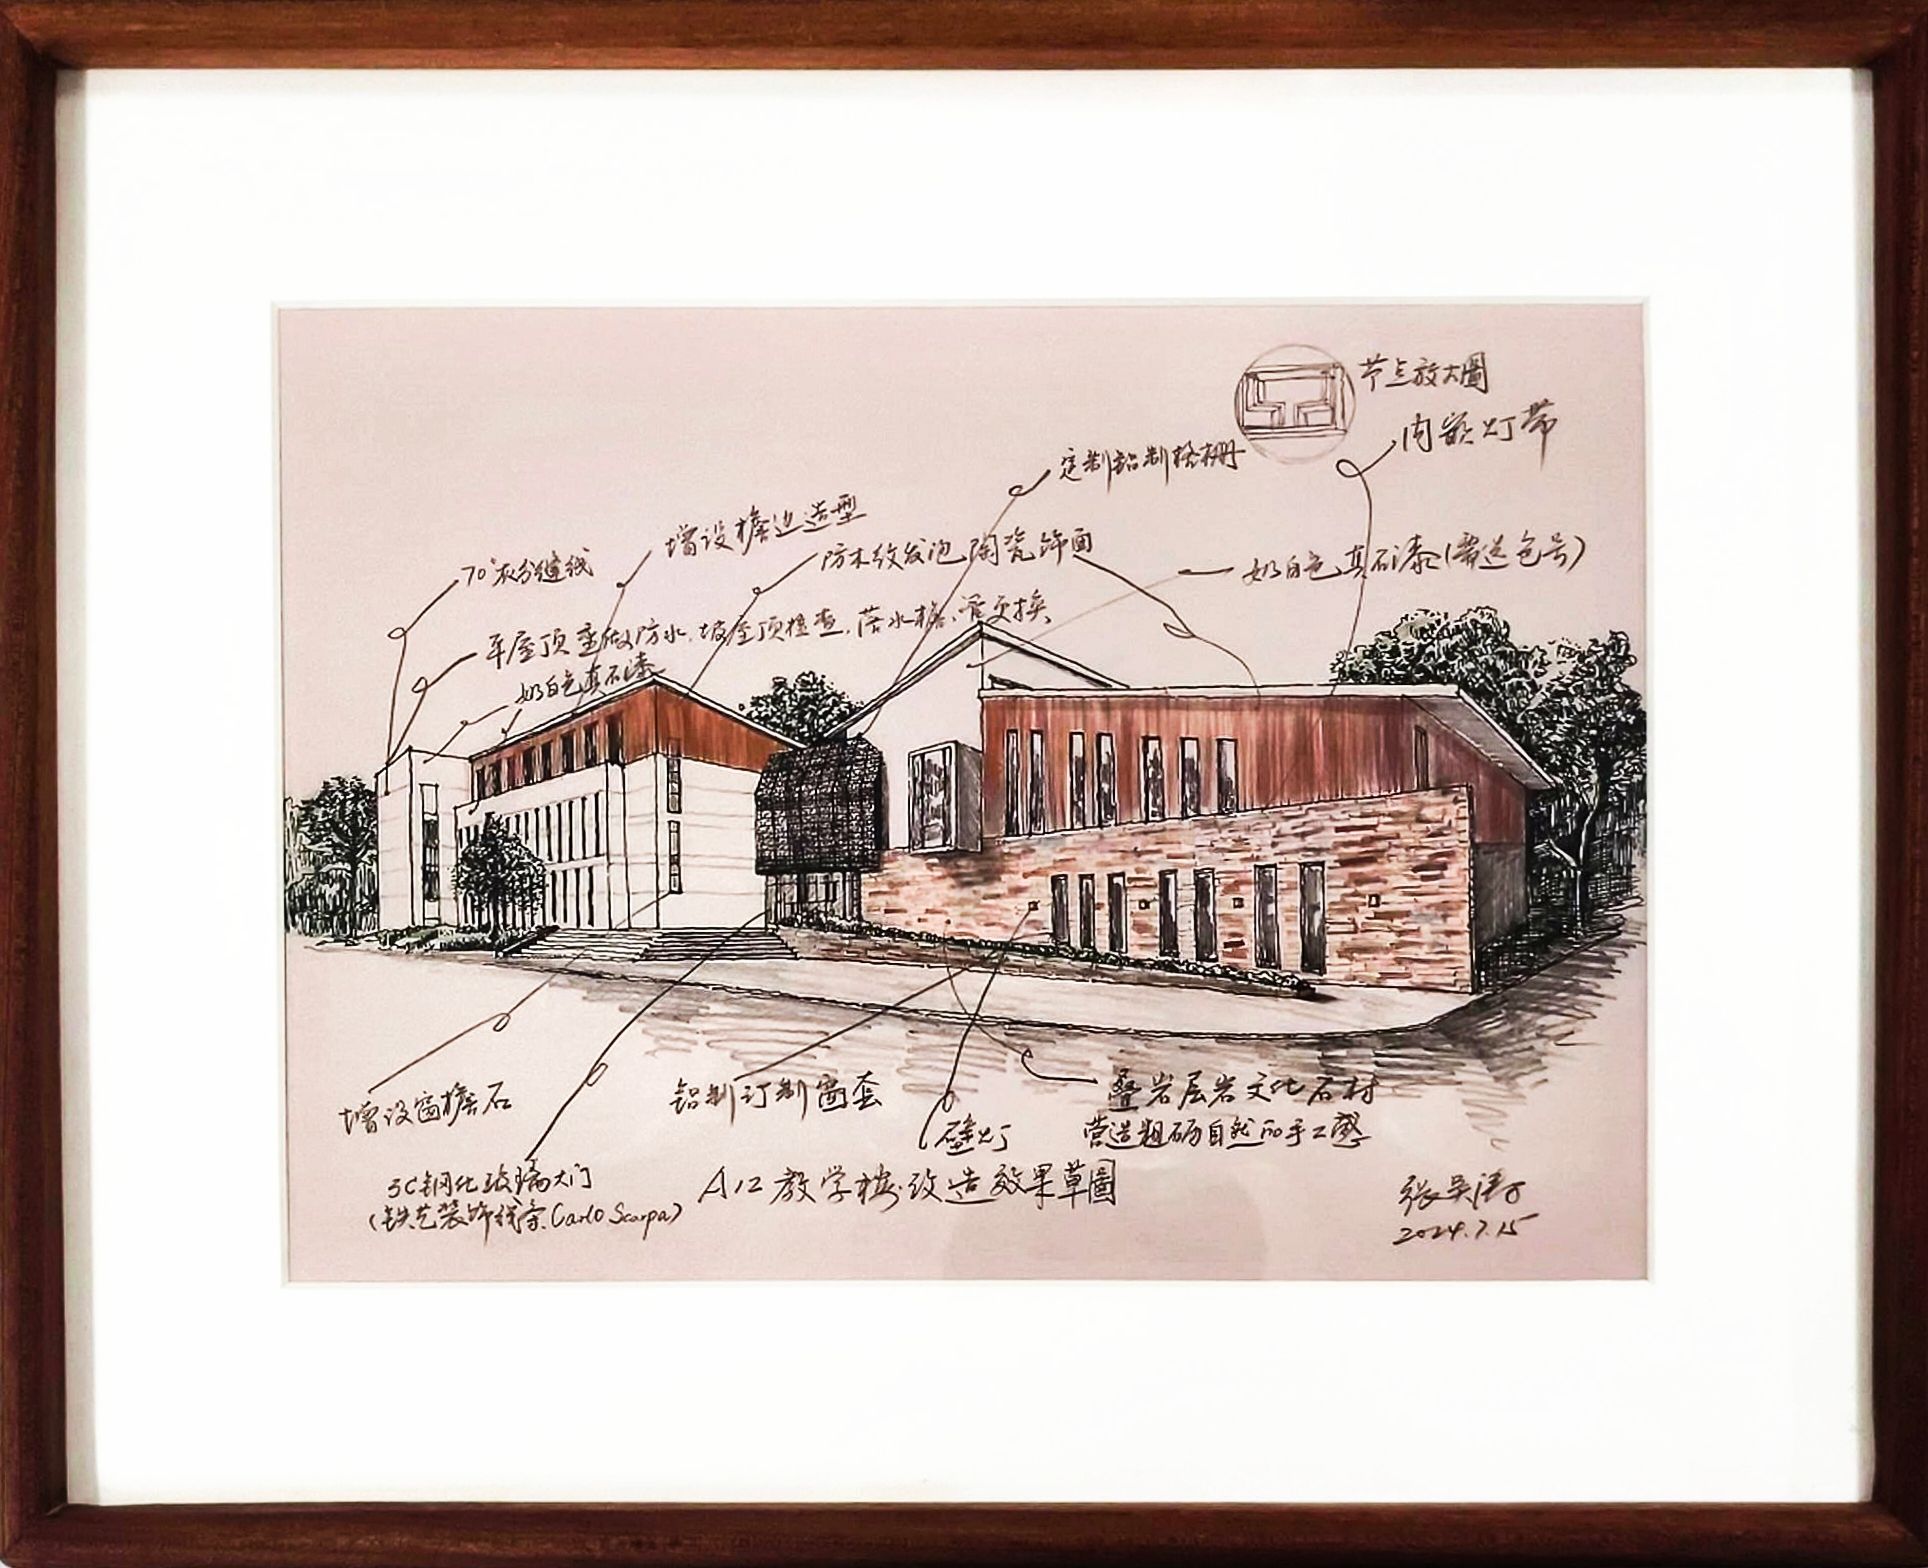 节点放大圖
内嵌灯带
定制铝制格栅
增设檐边造型
防木纹发泡陶瓷饰面
奶白色真石漆(需送色号)
70°灰分缝线
平屋顶重做防水.坡屋顶检查.落水檐、管更换
奶白色真石漆
增设窗檐石
铝制订制窗套
壁灯
叠岩层岩文化石材
营造粗砺自然的手工感
3C钢化玻璃大门
(铁艺装饰线条.Carlo Scarpa)
A12教学楼.改造效果草圖
2024.7.15